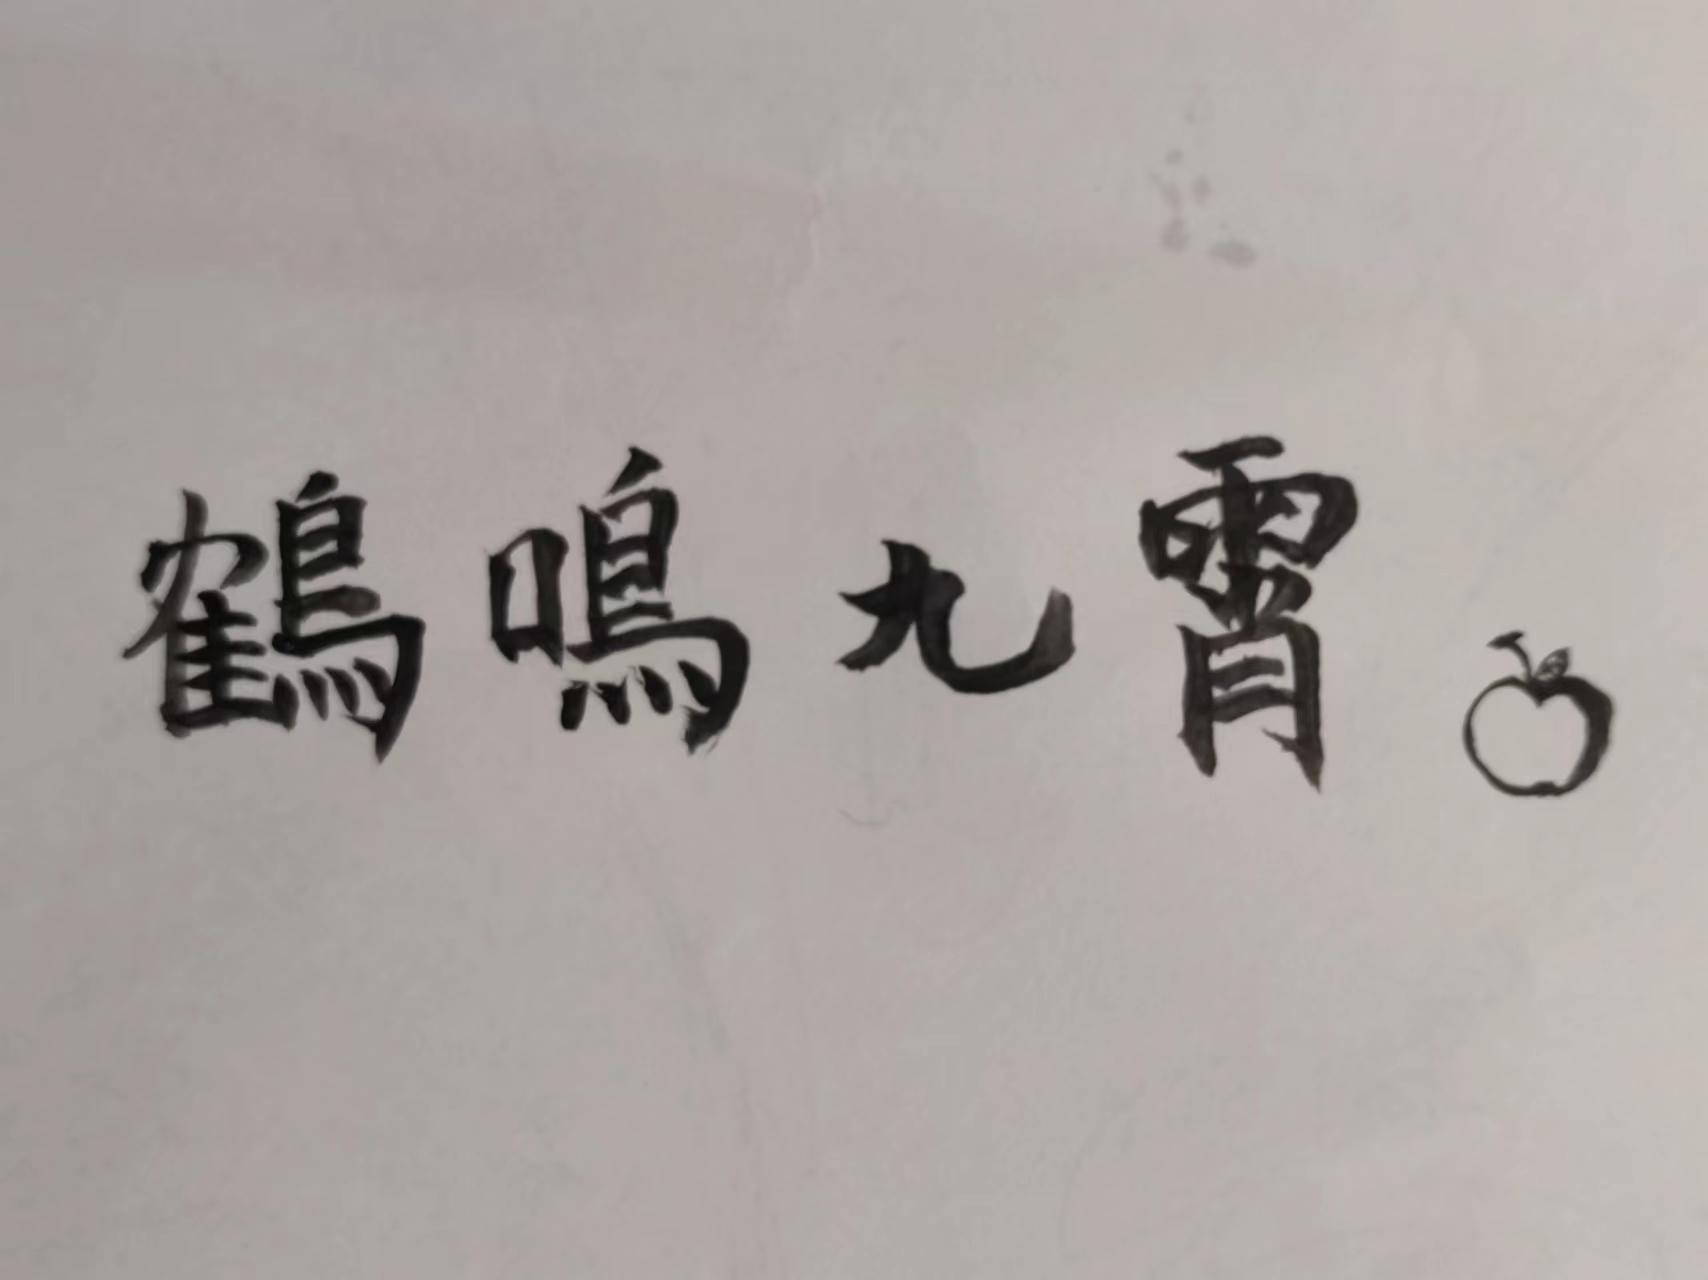 鶴鳴九霄